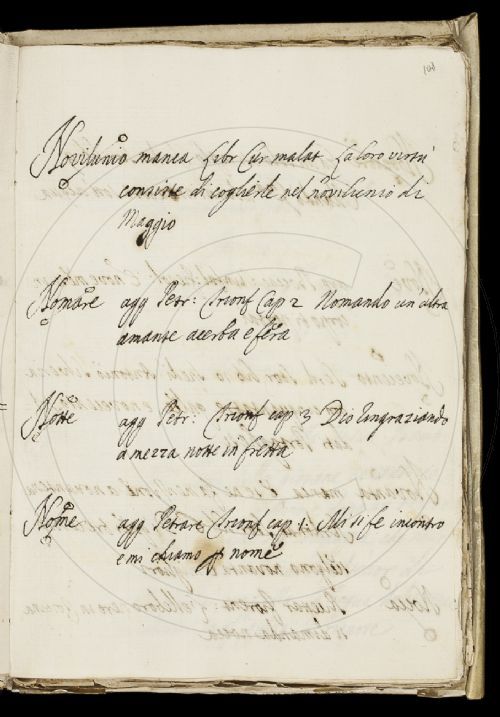 104
Novilunio manca Libr Cur malat La loro virtù
consiste di coglierle nel novilunio di
Maggio
Nomare agg Petr: Trionf Cap 2 Nomando un'altra
amante acerba e fera
Notte agg Petr: Trionf cap 3 Dio ringraziando
a mezza notte in fretta
Nome agg Petrarc Trionf cap 1: Mi si fe incontro
e mi chiamo p nome